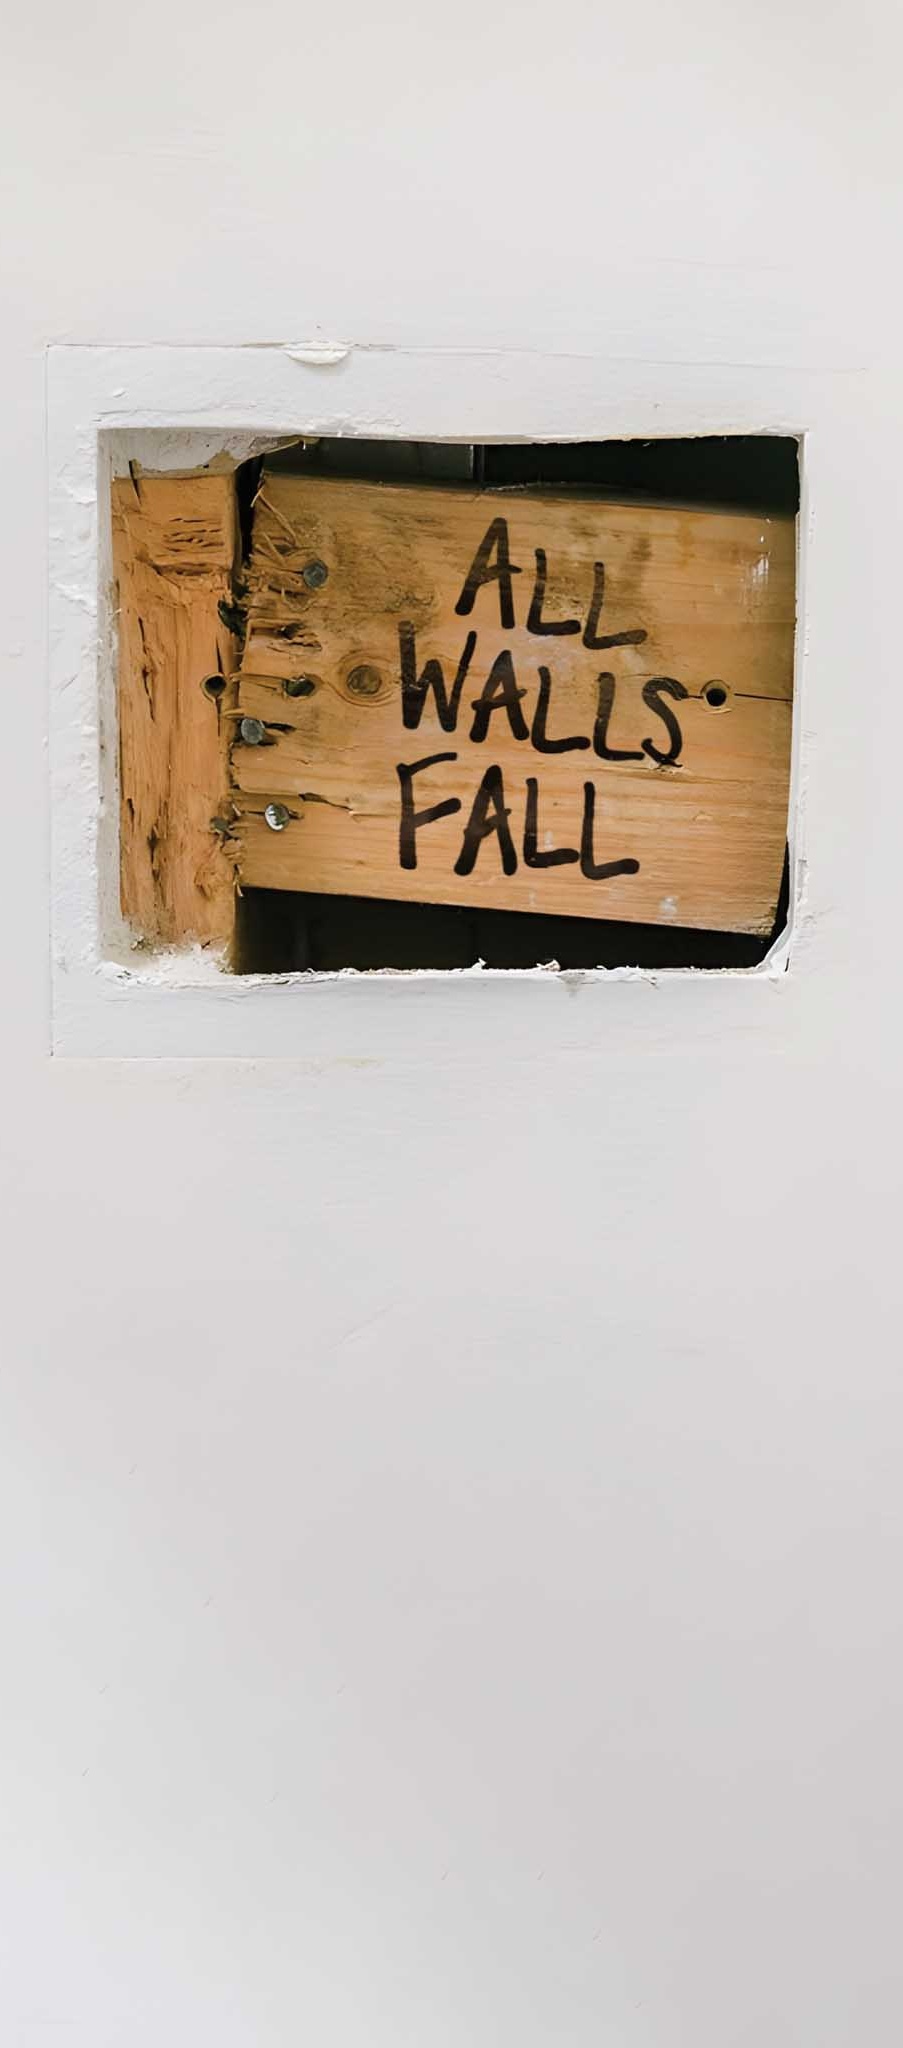 ALL
WALLS
FALL